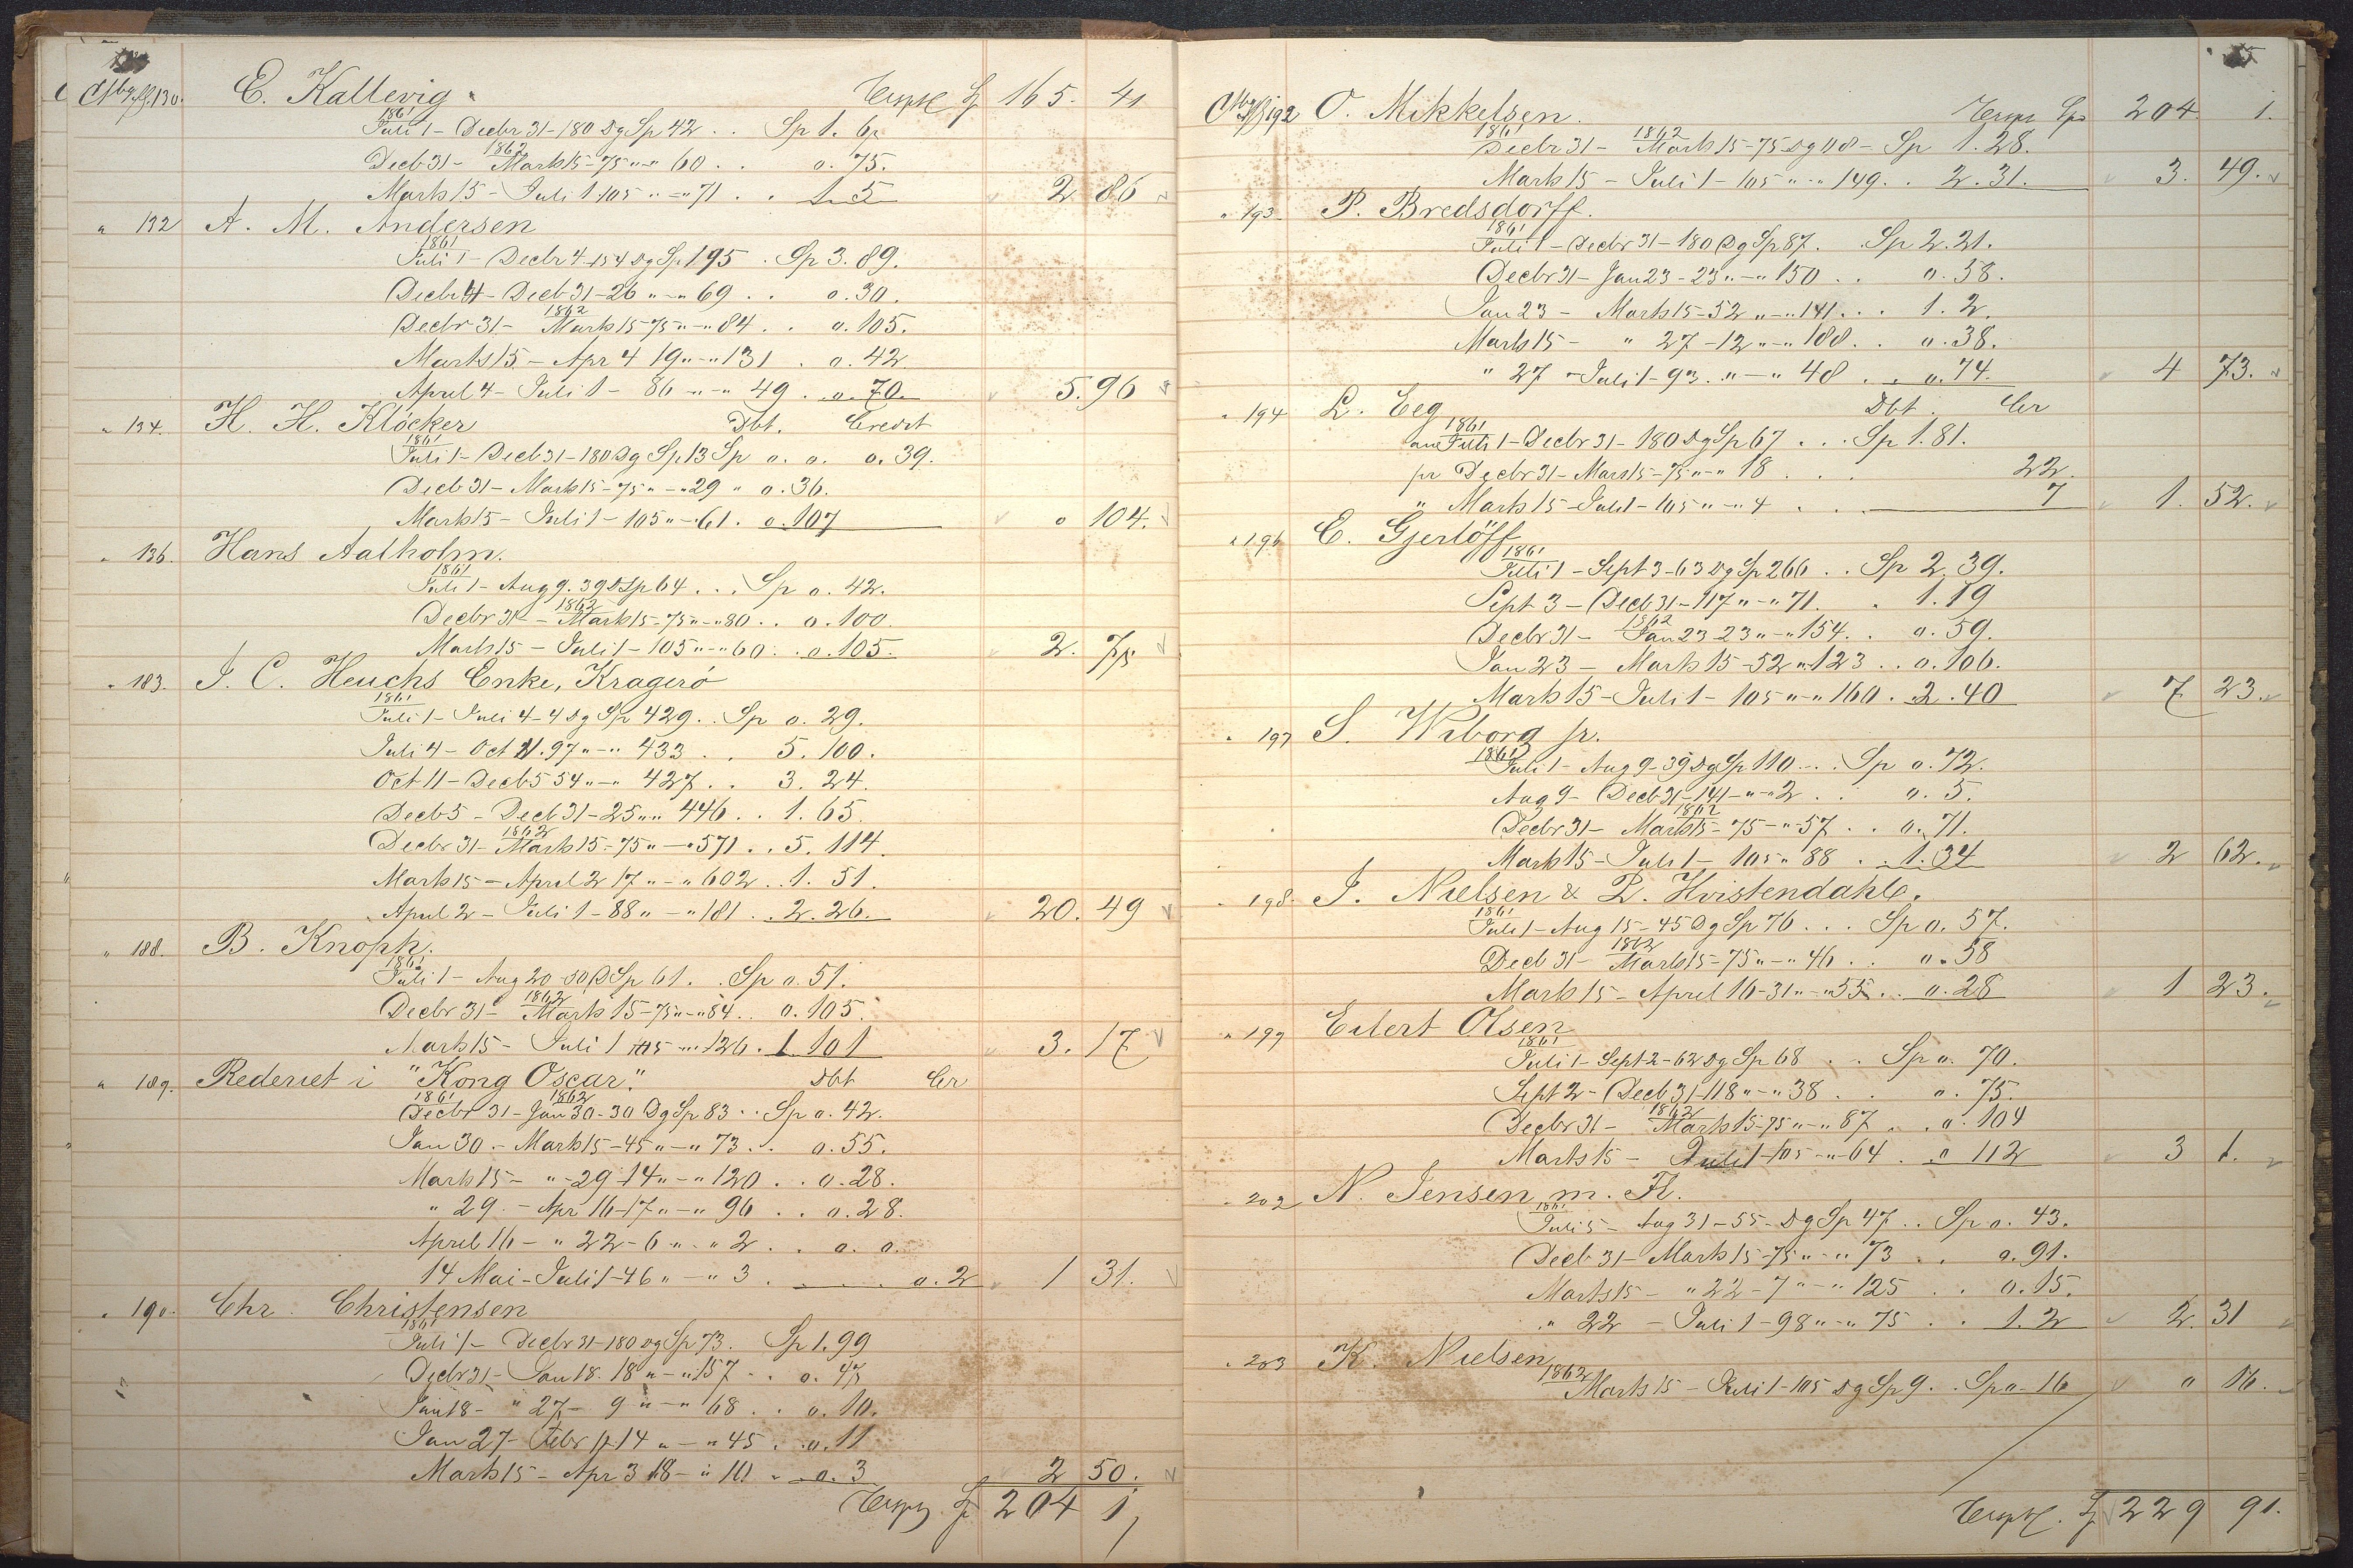 130. E. Kallevig. Transp Sp 165. 41
1861
Juli 1 - Decbr 31 - 180 Dg Sp 42 . . Sp 1. 6
1862
Decb 31 - Marts 15 - 75 " - " 60 . . o. 75.
Marts 15 - Juli 1 105 " - " 71 . . 1. 5 2 86
" 132 A. M. Andersen
1861
Juli 1 - Decbr 4 - 154 Dg Sp 195 . Sp 3. 89.
Decbr 4 - Decb 31 - 26 " - " 69 . . o. 30.
1862
Decbr 31 - Marts 15 - 75 " - " 84 . . o. 105.
Marts 15 - Apr 4 19 " - " 131 . o. 42
April 4 - Juli 1 - 86 " - " 49 . o. 70. 5. 96
" 134. H. H. Klöcker Dbt. Credit
1861
Juli 1 - Decb 31 - 180 Dg Sp 13 Sp o. o. o. 39.
Decb 31 - Marts 15 - 75 " - " 29 " o. 36.
Marts 15 - Juli 1 - 105 " - " 61 . o. 107 o 104.
" 136. Hans Aalholm.
1861
Juli 1 - Aug 9. 39 D Sp 64 . . . Sp o. 42.
1862
Decbr 31 - Marts 15 - 75 " - " 80 . . o. 100.
Marts 15 - Juli 1 - 105 " - " 60 . . o. 105. 2. 7
" 183. J. C. Heuchs Enke, Kragerö
1861
Juli 1 - Juli 4 - 4 Dg Sp 429 . . Sp o. 29.
Juli 4 - Oct 11. 97 " - " 433 . . 5. 100.
Oct 11 - Decb 5 54 " - " 427 . . 3. 24.
Decb 5 - Decb 31 - 25 " " 446 . . 1. 65.
1862
Decbr 31 - Marts 15 - 75 " - " 571 . . 5. 114.
Marts 15 - April 2 17 " - " 602 . . 1. 51.
April 2 - Juli 1 - 88 " - " 181 . . 2. 26. 20. 49
" 188. B. Knoph.
1861
Juli 1 - Aug 20 - 50 D Sp 61 . . Sp o. 51.
1862
Decbr 31 - Marts 15 - 75 " - " 84 . . o. 105.
Marts 15 - Juli 1 105 " - " 126 . 1. 101 3. 17
" 189. Rederiet i "Kong Oscar". Dbt Cr
1861 1862
Decbr 31 - Jan 30 - 30 Dg Sp 83 . . Sp o. 42.
Jan 30 - Marts 15 - 45 " - " 73 . . o. 55.
Marts 15 - " - 29 - 14 " - " 120 . . o. 28.
" 29. - Apr 16 - 17 " - " 96 . . o. 28.
April 16 - " 22 - 6 " - " 2 . . o. o.
14 Mai - Juli 1 - 46 " - " 3 . . . . o. 2 1 31.
" 190. Chr. Christensen
1861
Juli 1 - Decbr 31 - 180 Dg Sp 73. Sp 1. 99
Decbr 31 - Jan 18. 18 " - " 157 . . o. 47
Jan 18 - " 27 - 9 " - " 68 . . o. 10.
Jan 27 - Febr 11 14 " - " 45 . . o. 11
Marts 15 - Apr 3 18 - " 10 " o. 3 2 50.
Transp. Sp 204 1
192 O. Mikkelsen. Transp Sp 204 1.
1861 1862
Decbr 31 - Marts 15 - 75 Dg 108 - Sp 1. 28.
Marts 15 - Juli 1 - 105 " - " 149. . 2. 31. 3. 49.
" 193. P. Bredsdorff.
1861
Juli 1 - Decbr 31 - 180 Dg Sp 87. Sp 2. 21.
Decbr 31 - Jan 23 - 23 " - " 150 . . o. 58.
Jan 23 - Marts 15 - 52 " - " 141 . . . 1. 2.
Marts 15 - " 27 - 12 " - " 188 . . o. 38.
" 27 - Juli 1 - 93. " - " 48 . . o. 74. 4 73.
" 194 L. Eeg Dbt. Cr
1861
Juli 1 - Decbr 31 - 180 Dg Sp 67 . . . Sp 1. 81.
pr Decbr 31 - Marts 15 - 75 " - " 18 . . . 22.
" Marts 15 - Juli 1 - 105 " - " 4 . . . 7 1. 52.
" 196 C. Gjerlöff
1861
Juli 1 - Sept 3 - 63 Dg Sp 266 . . Sp 2. 39.
Sept 3 - Decb 31 - 117 " - " 71. . 1. 19
1862
Decbr 31 - Jan 23 23 " - " 154. . o. 59.
Jan 23 - Marts 15 - 52 " 123 . . o. 106.
Marts 15 - Juli 1 - 105 " - " 160 . 2. 40 7 23.
" 197 S. Wiborg jr.
1861
Juli 1 - Aug 9 - 39 Dg Sp 110 . . . Sp o. 72.
Aug 9 - Decb 31 - 141 - " - " 2 . . o. 5.
1862
Decbr 31 - Marts 15 - 75 - " - 57 . . o. 71.
Marts 15 - Juli 1 - 105 " 88 . . 1. 34 2 62.
" 198. J. Nielsen & P. Hvistendahl.
1861
Juli 1 - Aug 15 - 45 Dg Sp 76 . . . Sp o. 57.
1862
Decb 31 - Marts 15 - 75 " - " 46 . . o. 58
Marts 15 - April 16 - 31 " - " 55 . . o. 28 1 23.
" 199 Eilert Olsen
1861
Juli 1 - Sept 2 - 62 Dg Sp 68 . . Sp o. 70.
Sept 2 - Decb 31 - 118 " - " 38 . . o. 75.
1862
Decbr 31 - Marts 15 - 75 " - " 87 . . o. 109
Marts 15 - Juli 1 - 105 " - " 64 . o 112 3 1.
" 202 N. Jensen m. Fl.
1861
Juli 5 - Aug 31 - 55 - Dg Sp 47 . . Sp o. 43.
Decb 31 - Marts 15 - 75 " - " 73 . . o. 91.
Marts 15 - " 22 - 7 " - " 125 . . o. 15.
" 22 - Juli 1 - 98 " - " 75 . . 1. 2 2. 31
" 203 K. Nielsen
1862
Marts 15 - Juli 1 - 105 Dg Sp 9 . . Sp o. 16 o 16.
Transp. Sp 229 91.